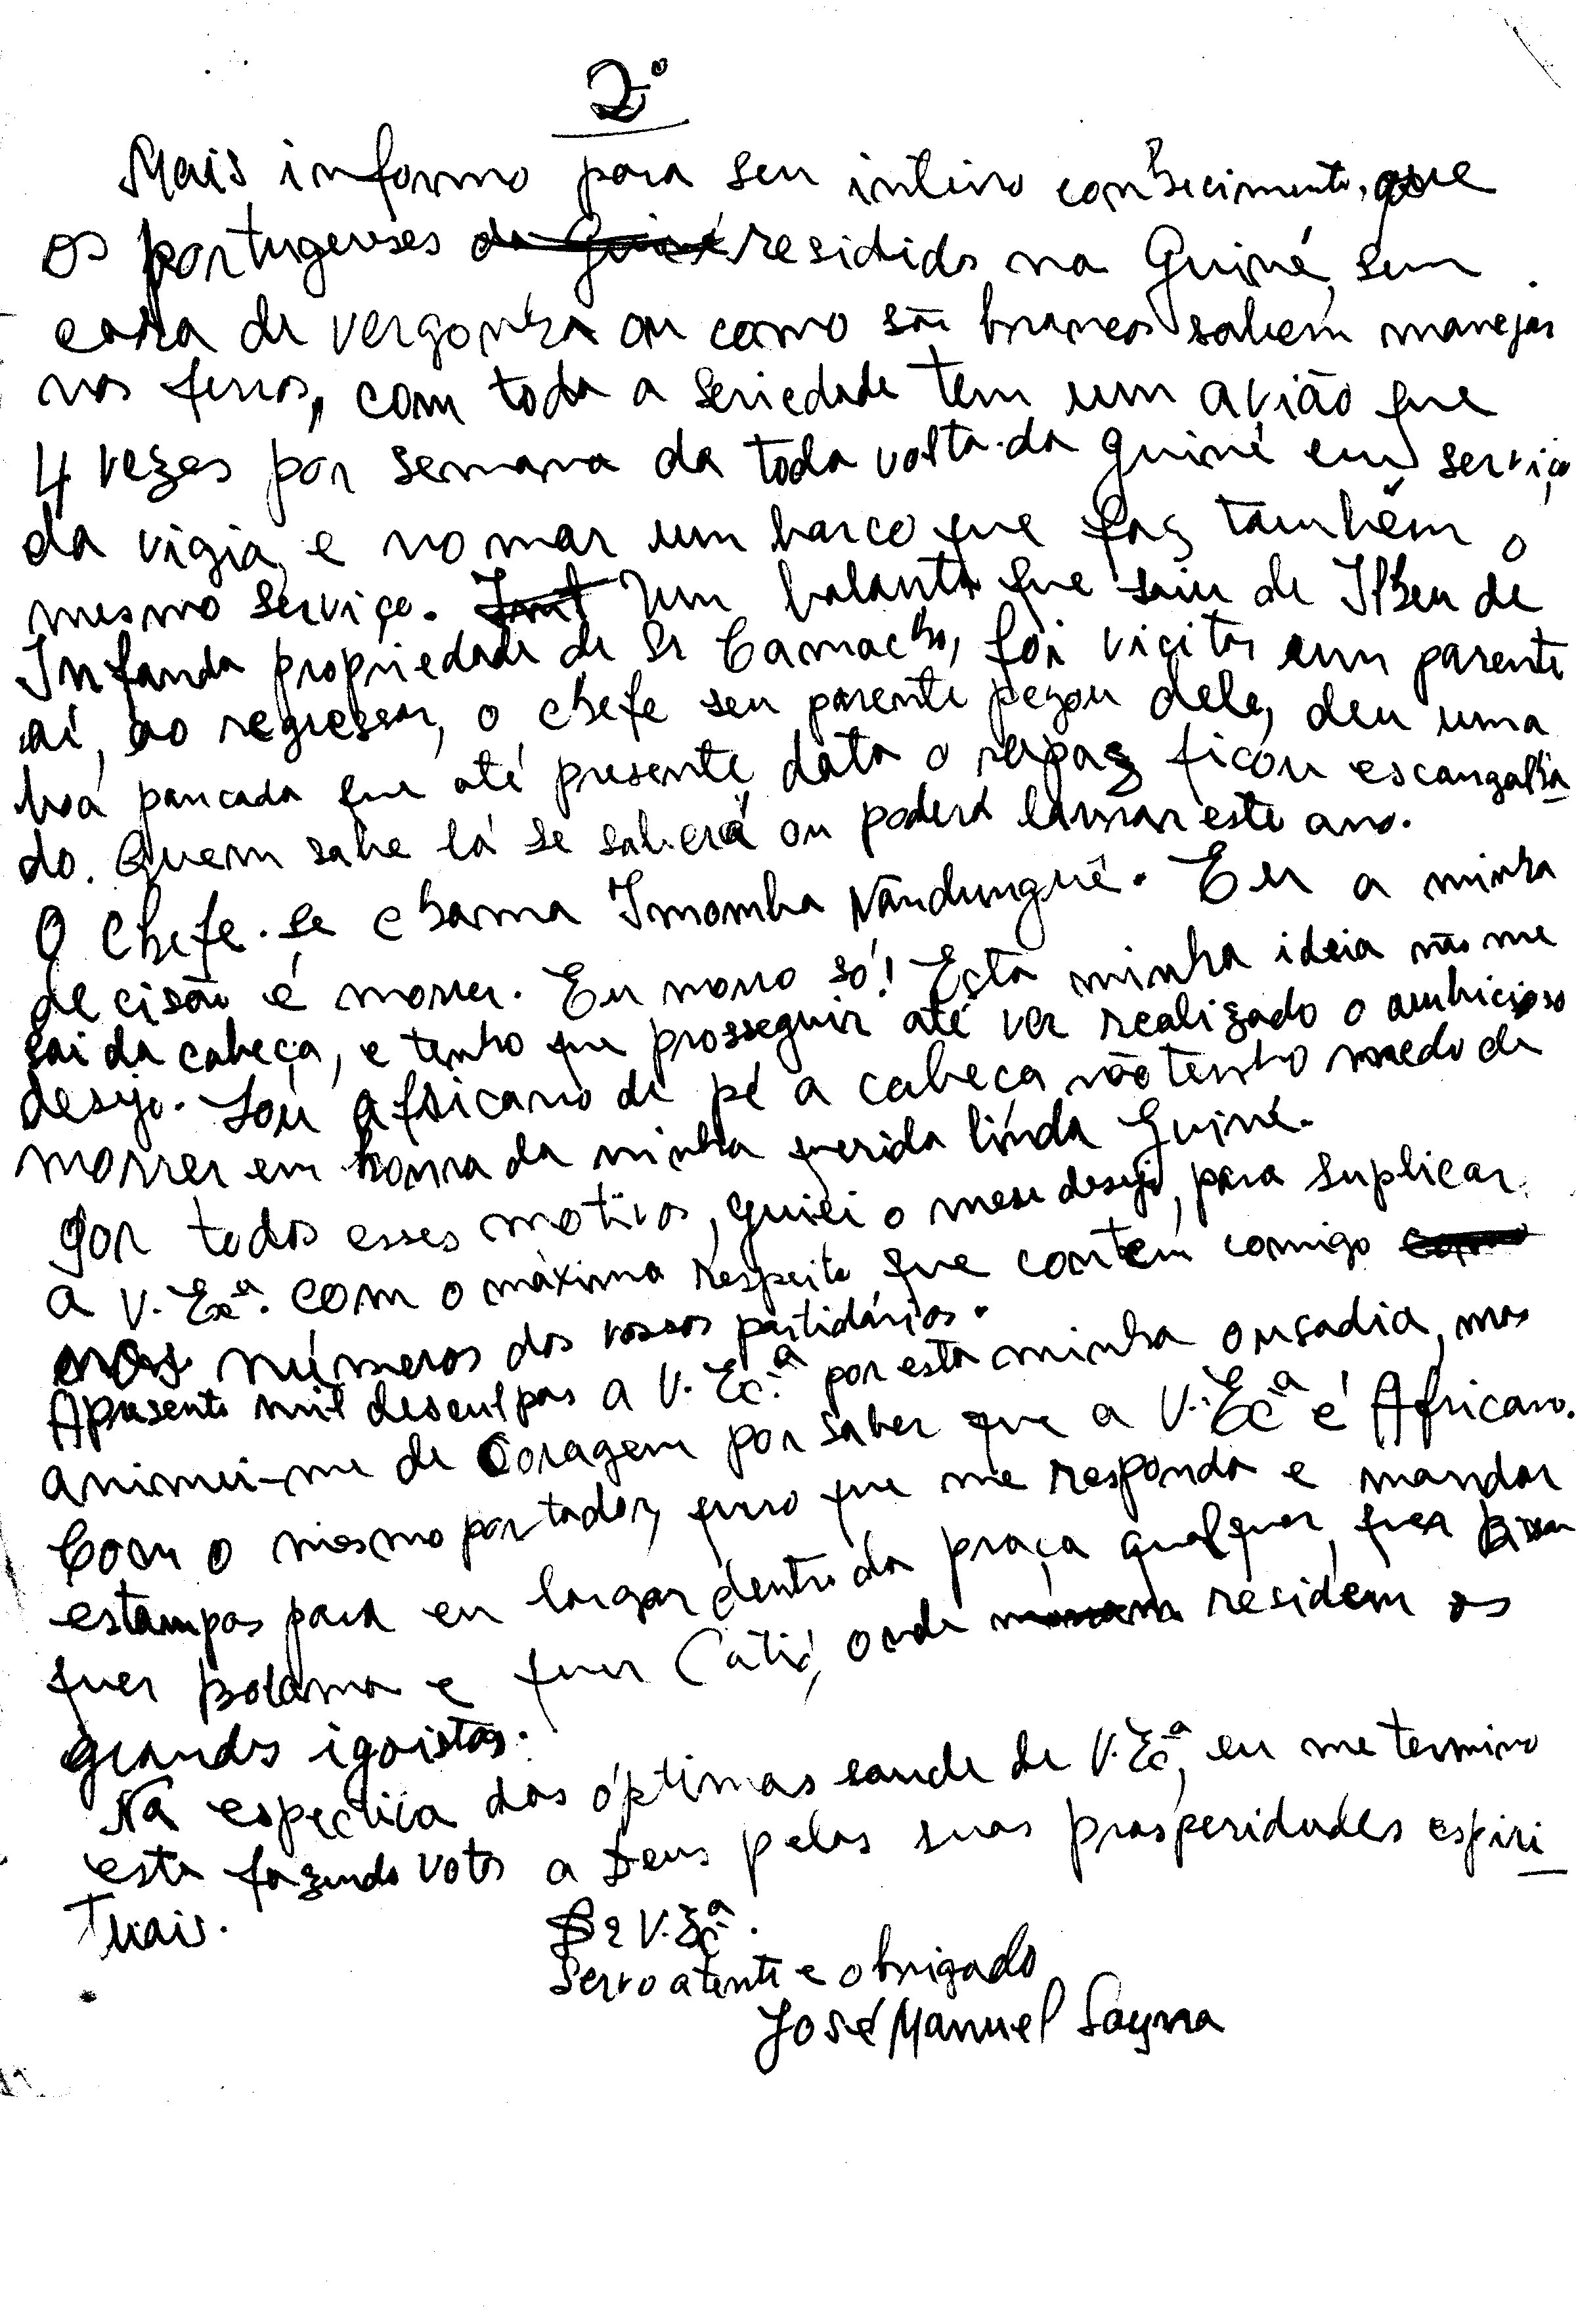 2º
Mais informo para seu inteiro conhecimento, que
os portugueses da Guiné residido na Guiné, sem
cara de vergonha ou como são brancos sabem manejar
nos ferros, com toda a seriedade tem um avião que
4 vezes por semana da toda volta da Guiné em serviço
da vigia, e no mar um barco que faz também o
mesmo serviço. Um balanta que saiu de Ilheu de
Infanda propriedade de Sr Camacho, foi vicitar um parente
aí, ao regressar, o chefe seu parente pegou dele, deu uma
boa pancada que até presente data o rapaz ficou escangalha
do. Quem sabe lá se saberá ou poderá lavrar este ano.
O Chefe. se chama Imomba Nandunguê. Eu a minha
decisão é morrer. Eu morro só! Esta minha ideia não me
sai da cabeça, e tenho que prosseguir até ver realizado o ambicioso
desejo. Sou africano de pé a cabeça não tenho medo de
morrer em honra da minha querida linda Guiné.
Por todos esses motivos, guiei o meu desejo, para suplicar
a V. Exª. com o máximo respeito que contem comigo
nos números dos vossos partidários.
Apresento mil desculpas a V. Excª por esta minha ousadia, mas
animei-me de Coragem por saber que a V. Excª é Africano.
Com o mesmo portador, quero que me responda e mandar
estampas para eu largar dentro da praça qualquer, quer Bissau
quer Bolama e quer Catió, onde residem os
grandes igoistas.
Na espectiva das óptimas saude de V. Excª, eu me termino
esta fazendo votos a Deus pelas suas prosperidades espiri
tuais.
De V. Excª.
Servo atente e obrigado
José Manuel Sayna